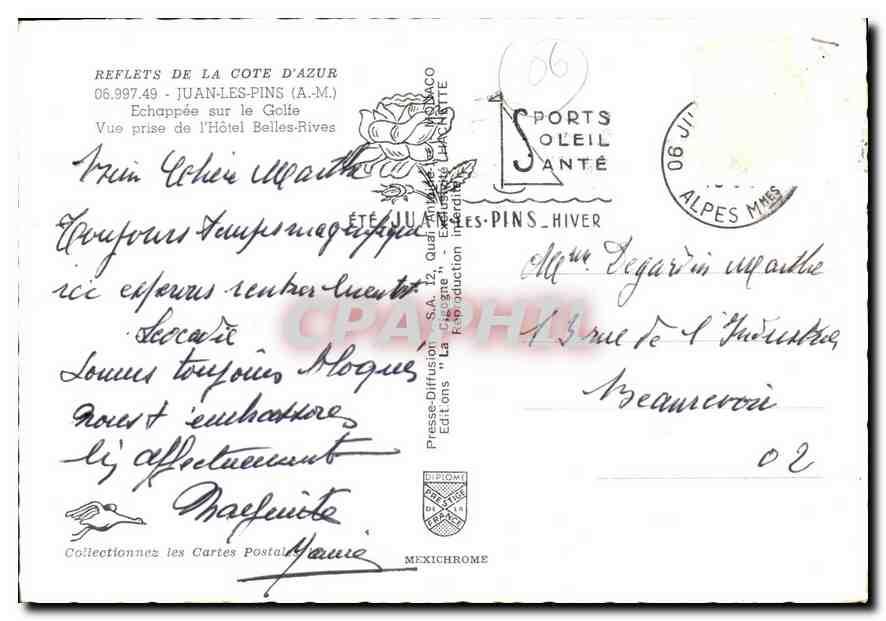 REFLETS DE LA COTE D'AZUR
06.997.49 - JUAN-LES-PINS (A.-M.)
Echappée sur le Golfe
Vue prise de l'Hôtel Belles-Rives
06
SPORTS
SOLEIL
SANTÉ
ÉTÉ JUAN-LES-PINS_HIVER
06 JU
ALPES MMES
Chère Marthe
Toujours temps magnifique
ici espérons rentrer bientôt
Léocadie
Sommes toujours bloqués
nous t'embrassons
affectueusement
Marguerite
Collectionnez les Cartes Postales
Presse-Diffusion S.A. 12, Quai Antoine 1er MONACO
Editions "La Cigogne" - Exclusivité HACHETTE
Reproduction interdite
DIPLOME
PRESTIGE
DE LA
FRANCE
MEXICHROME
Mme Degardin Marthe
13 rue de l'Industrie
Beaurevoir
02
CPAPHIL